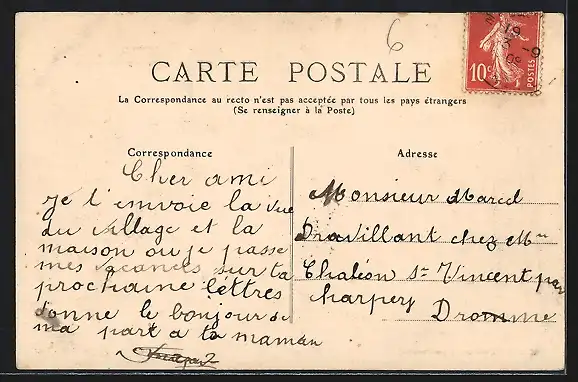 6
CARTE POSTALE
La Correspondance au recto n'est pas acceptée par tous les pays étrangers
(Se renseigner à la Poste)
Correspondance
Cher ami
je t'envoie la vue
du village et la
maison ou je passe
mes vacances sur ta
prochaine léttres
donne le bonjour de
ma part a ta maman
Adresse
Monsieur Marcel
chez Mr
St Vincent par
Charpey Dromme
10c
POSTES